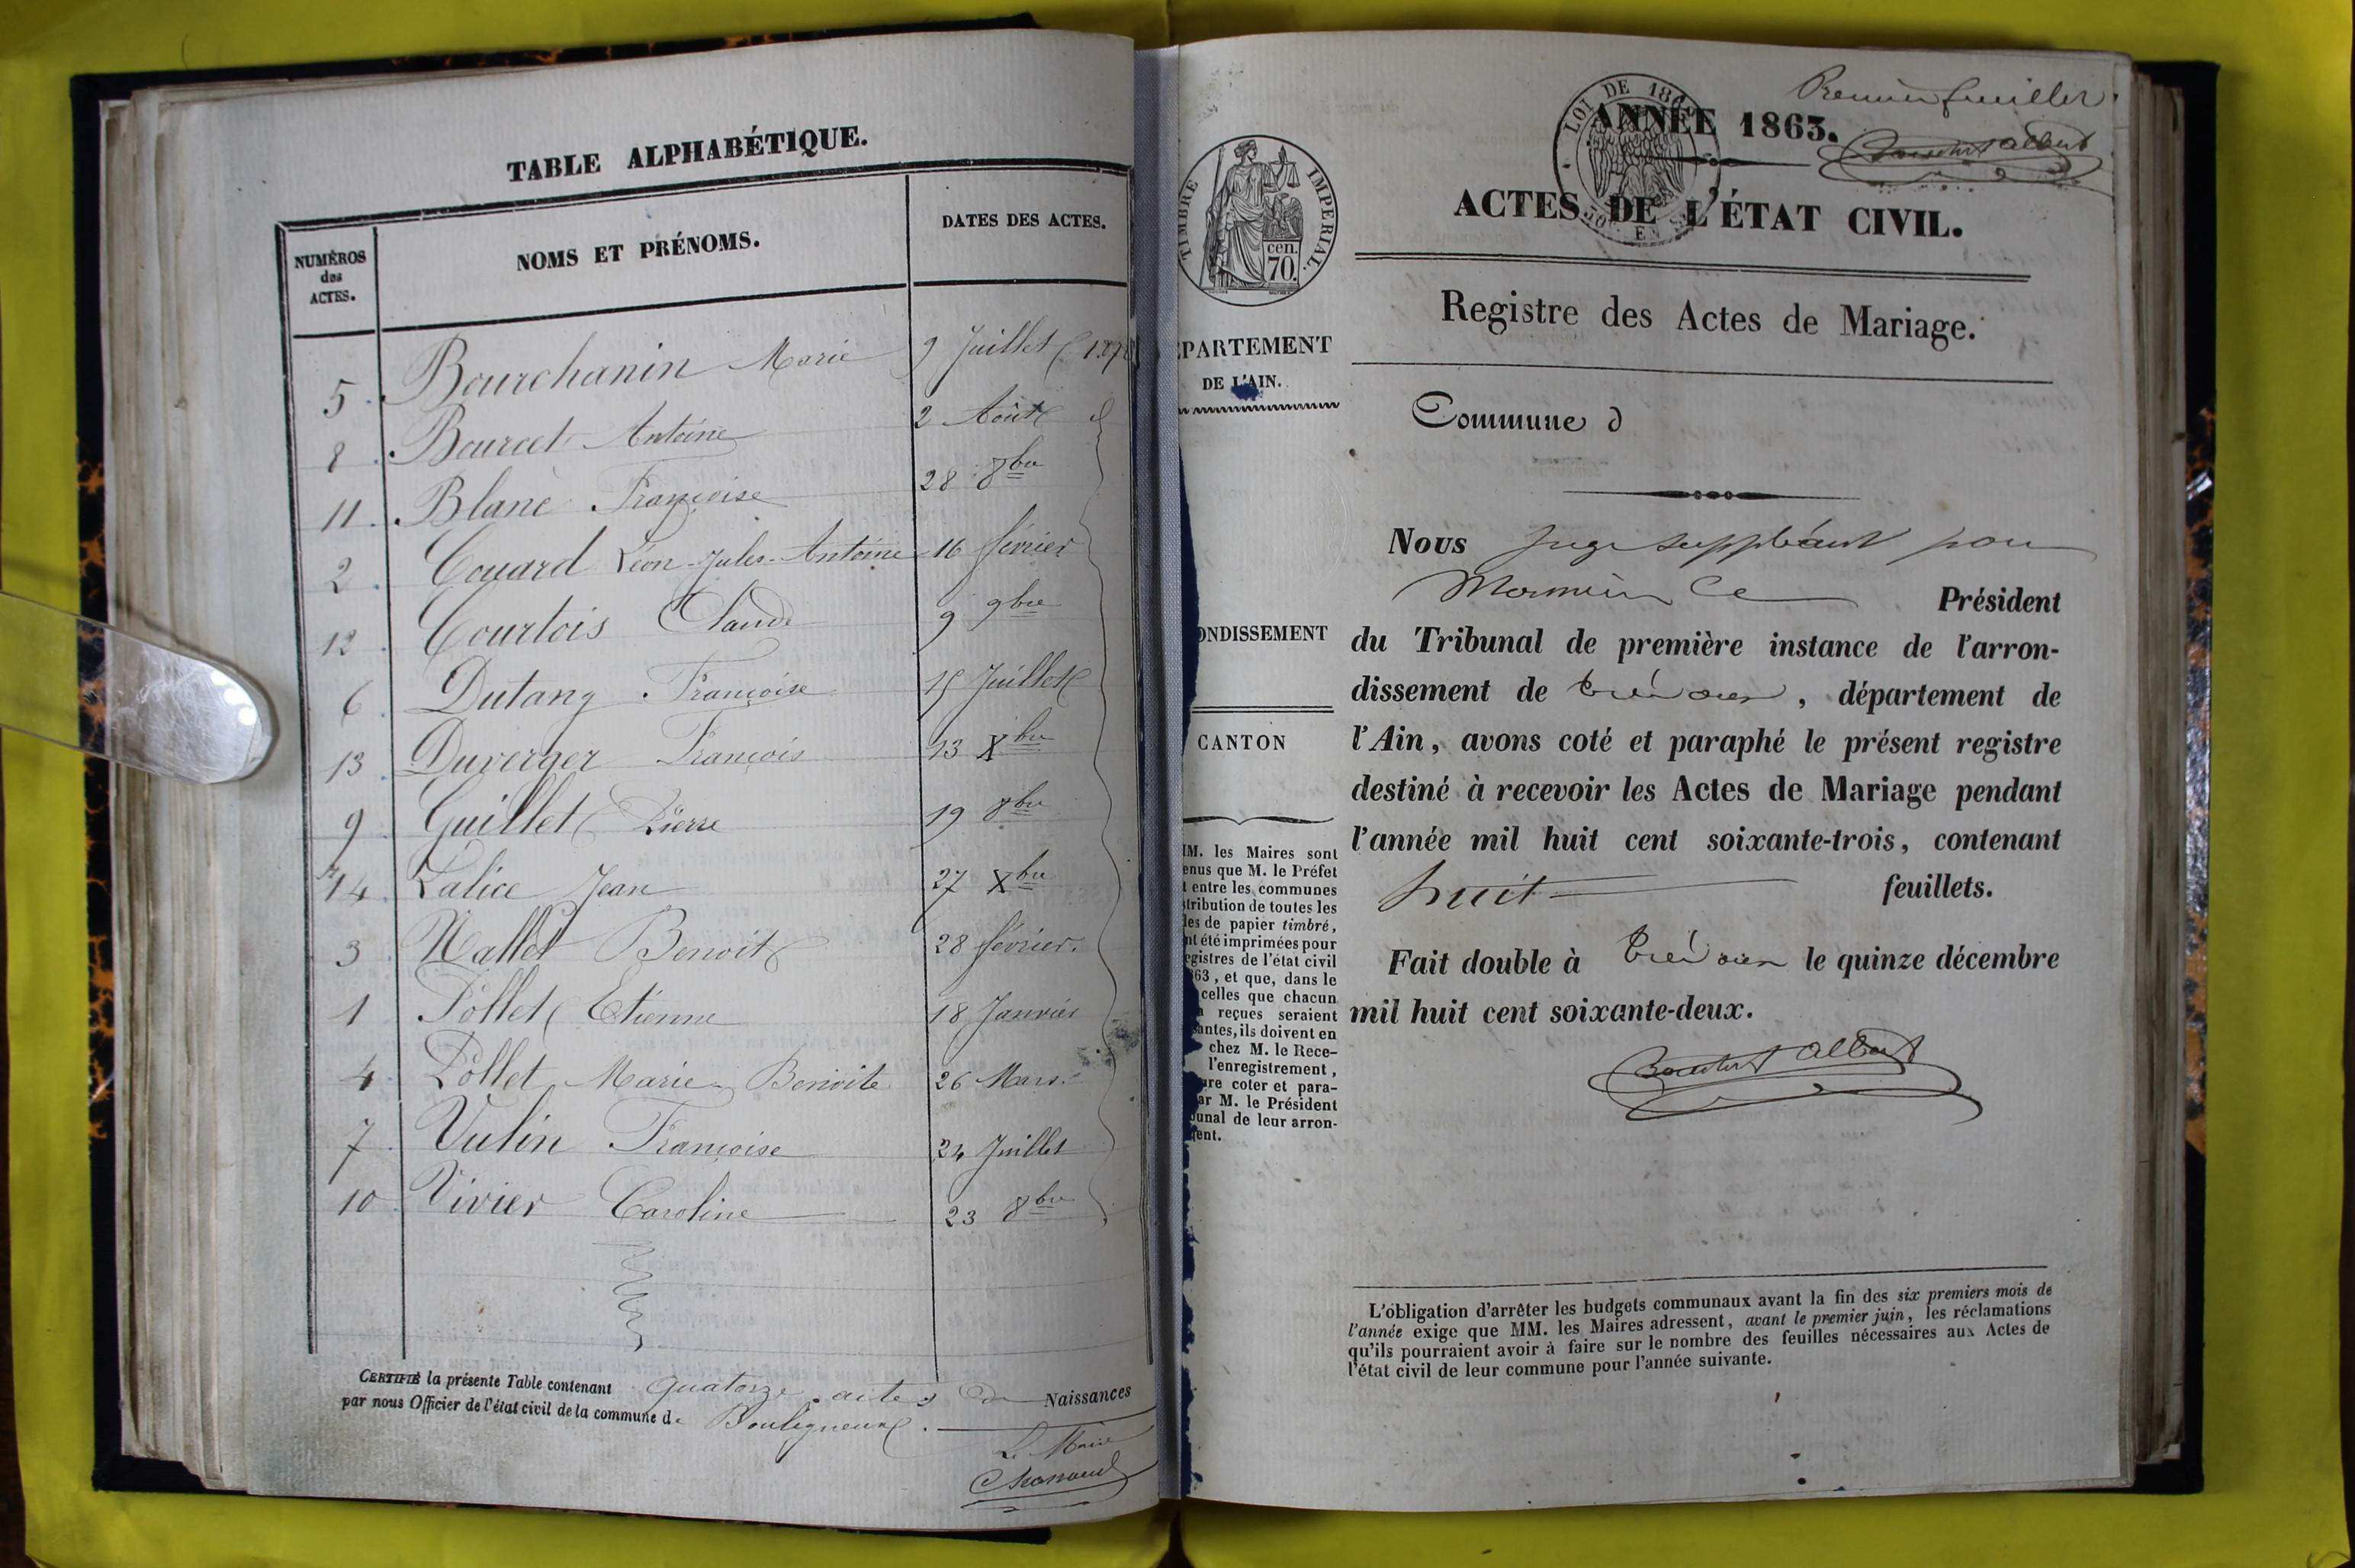 TABLE ALPHABÉTIQUE.
NUMÉROS des ACTES.
NOMS ET PRÉNOMS.
DATES DES ACTES.
5 Bourchanin Marie 9 Juillet
8 Bourcet Antoine 2 Août
11 Blanc Françoise 28 8bre
2 Couard Léon-Jules-Antoine 16 février
12 Courtois Claude 9 9bre
6 Dutang Françoise 15 Juillet
13 Duverger François 13 Xbre
9 Guillet Pierre 19 8bre
14 Lalice Jean 27 Xbre
3 Nallet Benoit 28 février.
1 Pollet Etienne 18 Janvier
4 Pollet Marie Benoite 26 Mars
7 Vulin Françoise 24 Juillet
10 Vivier Caroline 23 8bre
CERTIFIÉ la présente Table contenant quatorze actes de Naissances
par nous Officier de l'état civil de la commune de Bouligneux.
Le Maire
Premier feuillet
LOI DE
ANNÉE 1863.
ACTES DE L'ÉTAT CIVIL.
TIMBRE IMPERIAL.
cen.
70.
Registre des Actes de Mariage.
PARTEMENT
DE L'AIN.
Commune d
Nous Juge suppléant pour
Monsieur le Président
ONDISSEMENT
du Tribunal de première instance de l'arron-
dissement de trévoux, département de
CANTON
l'Ain, avons coté et paraphé le présent registre
destiné à recevoir les Actes de Mariage pendant
l'année mil huit cent soixante-trois, contenant
huit feuillets.
Fait double à trévoux le quinze décembre
mil huit cent soixante-deux.
MM. les Maires sont
enus que M. le Préfet
t entre les communes
tribution de toutes les
les de papier timbré,
nt été imprimées pour
egistres de l'état civil
63, et que, dans le
celles que chacun
reçues seraient
antes, ils doivent en
chez M. le Rece-
l'enregistrement,
ire coter et para-
ar M. le Président
unal de leur arron-
ent.
L'obligation d'arrêter les budgets communaux avant la fin des six premiers mois de
l'année exige que MM. les Maires adressent, avant le premier juin, les réclamations
qu'ils pourraient avoir à faire sur le nombre des feuilles nécessaires aux Actes de
l'état civil de leur commune pour l'année suivante.